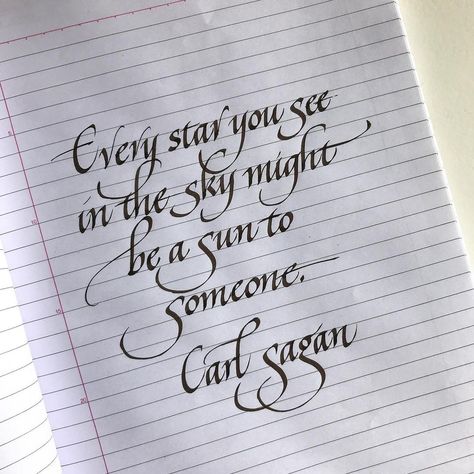 Every star you see
in the sky might
be a sun to
someone.
Carl Sagan